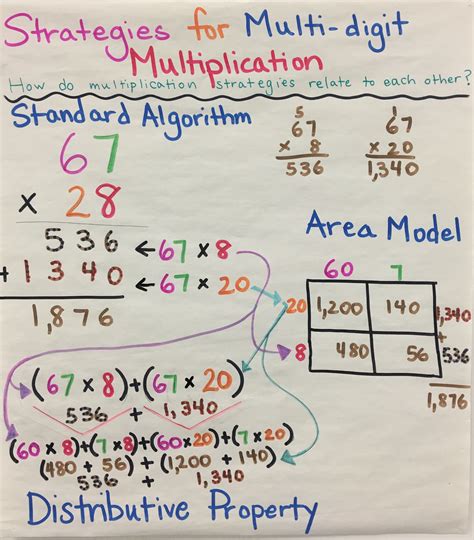 Strategies for Multi-digit
Multiplication
How do multiplication strategies relate to each other?
Standard Algorithm
67
x 28
536 ← 67 x 8
+ 1340 ← 67 x 20
1,876
5
67
x 8
536
1
67
x 20
1,340
Area Model
60 7
20 1,200 140 1,340
+
8 480 56 536
1,876
(67 x 8)+(67 x 20)
536 + 1,340
(60 x 8)+(7 x 8)+(60x20)+(7 x 20)
(480 + 56) + (1,200 + 140)
536 + 1,340
Distributive Property